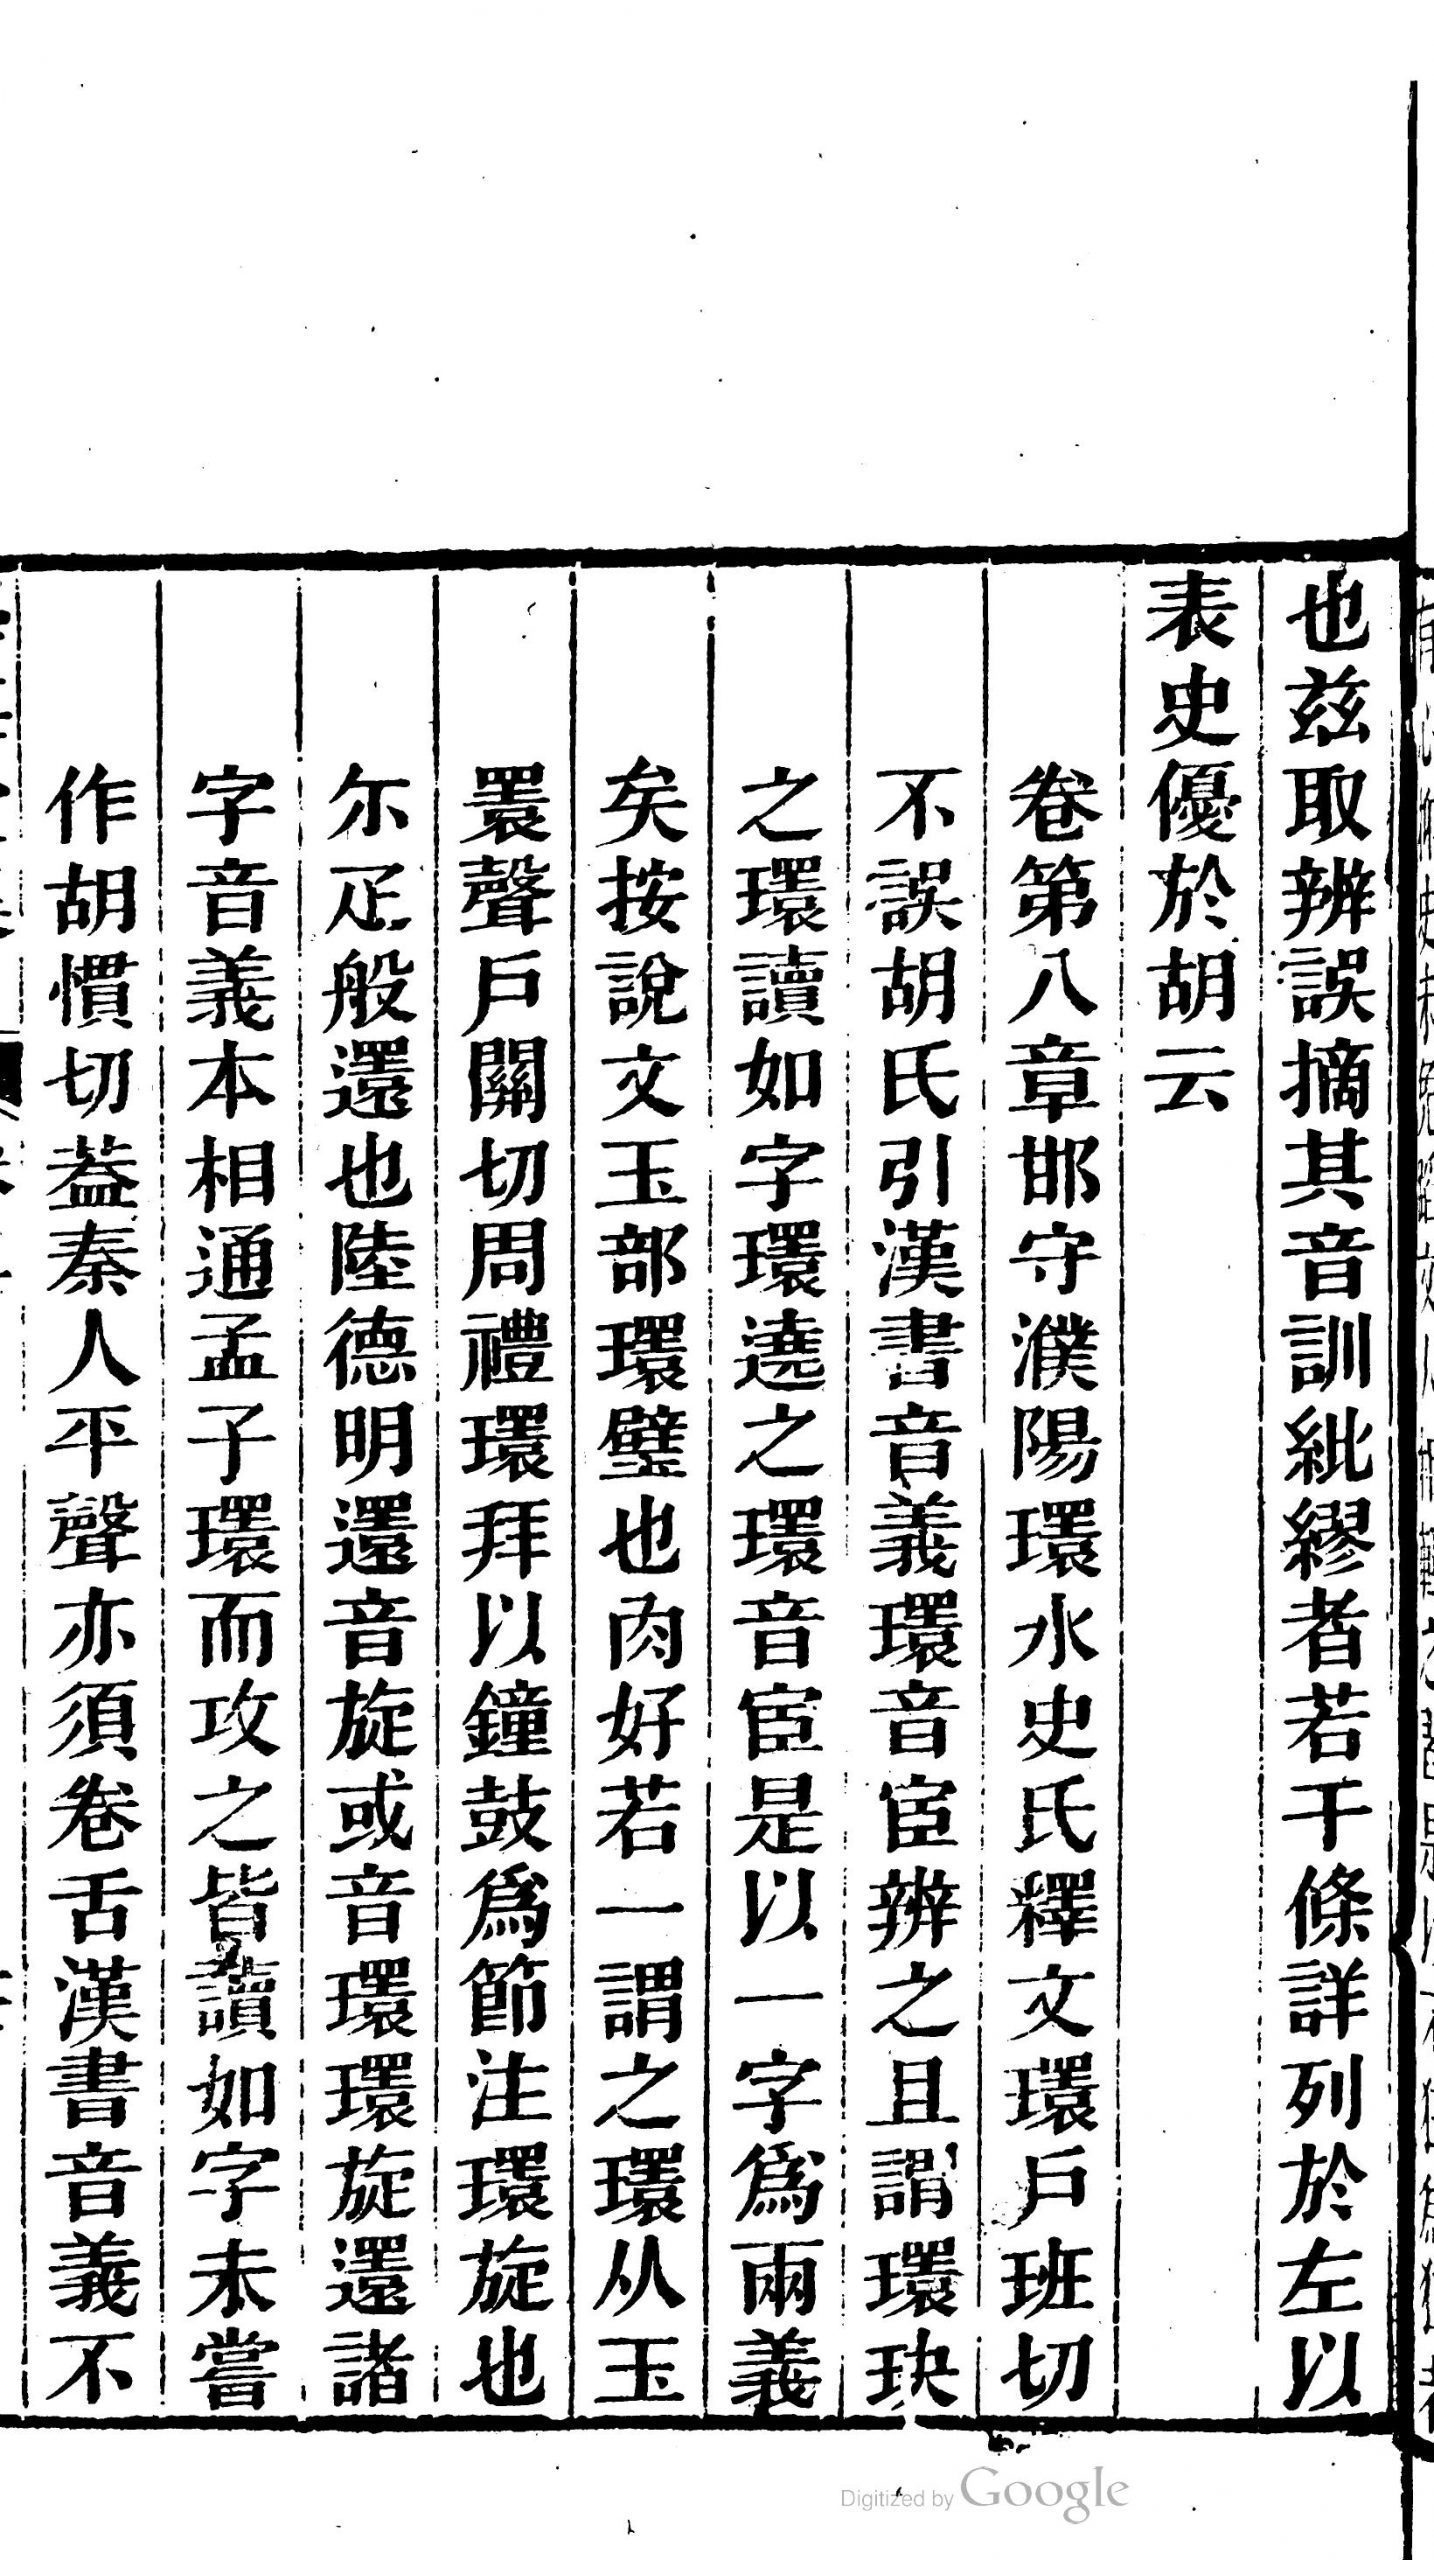 也兹取辨誤摘其音訓紕繆者若干條詳列於左以
表史優於胡云
卷第八章邯守濮陽環水史氏釋文環戶班切
不誤胡氏引漢書音義環音宦辨之且謂環玦
之環讀如字環遶之環音宦是以一字爲兩義
矣按說文玉部環璧也肉好若一謂之環从玉
睘聲戶關切周禮環拜以鐘鼓爲節注環旋也
尓疋般還也陸德明還音旋或音環環旋還諸
字音義本相通孟子環而攻之皆讀如字未嘗
作胡慣切葢秦人平聲亦須卷舌漢書音義不
Digitized by Google